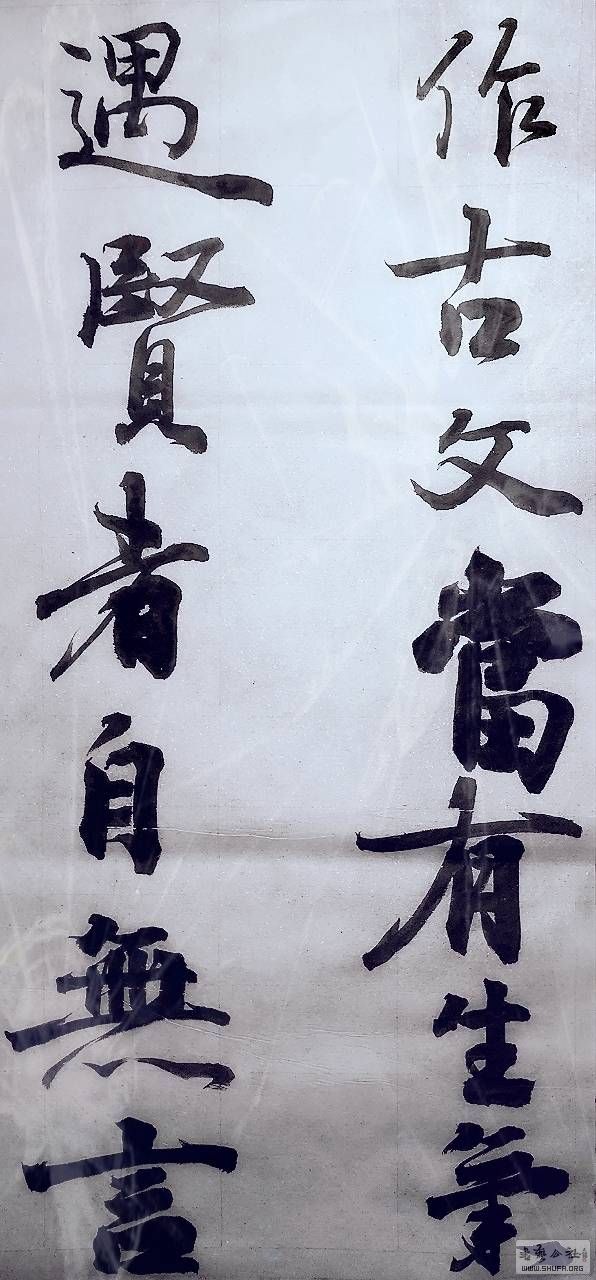 作古文當有生氣
遇賢者自無言
WWW.SHUFA.ORG